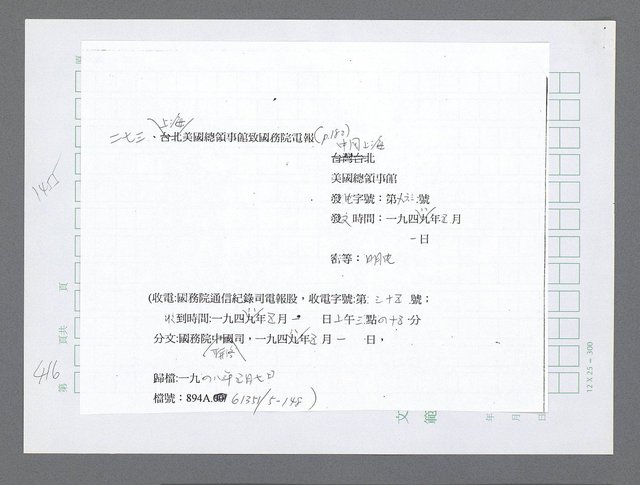 上海
二七三、台北美國總領事館致國務院電報(p.180)
中國上海
台灣台北
美國總領事館
發電字號:第 號
發文時間:一九四九年五月
一日
密等:明电
1455
(收電:國務院通信紀錄司電報股,收電字號:第三十五號;
收到時間:一九四九年五月一日上午三點四十五分
分文:國務院中國司,一九四九年五月一日,
歸檔:一九四八年五月七日
檔號:894A.00 6135/5-148)
416
第 頁共 頁
文 範
年 月 日
12 X 25 = 300